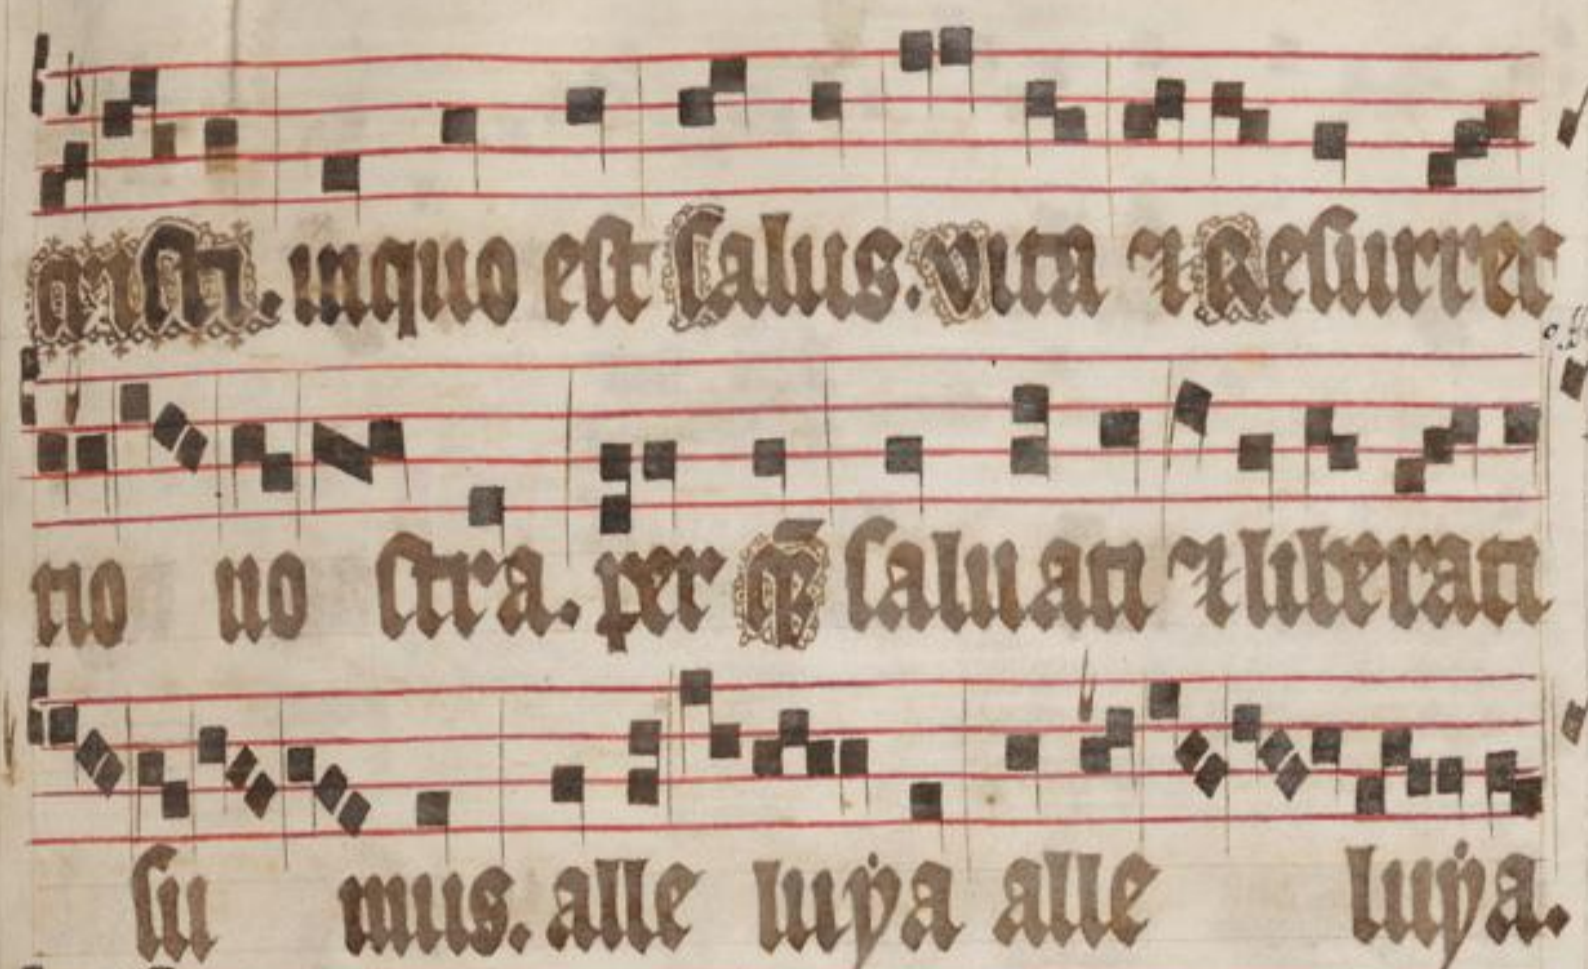 cristi. in quo est Salus. Vita ⁊ Resurrec
tio no stra. per quē saluati ⁊ liberati
su mus. alle luẏa alle luẏa.